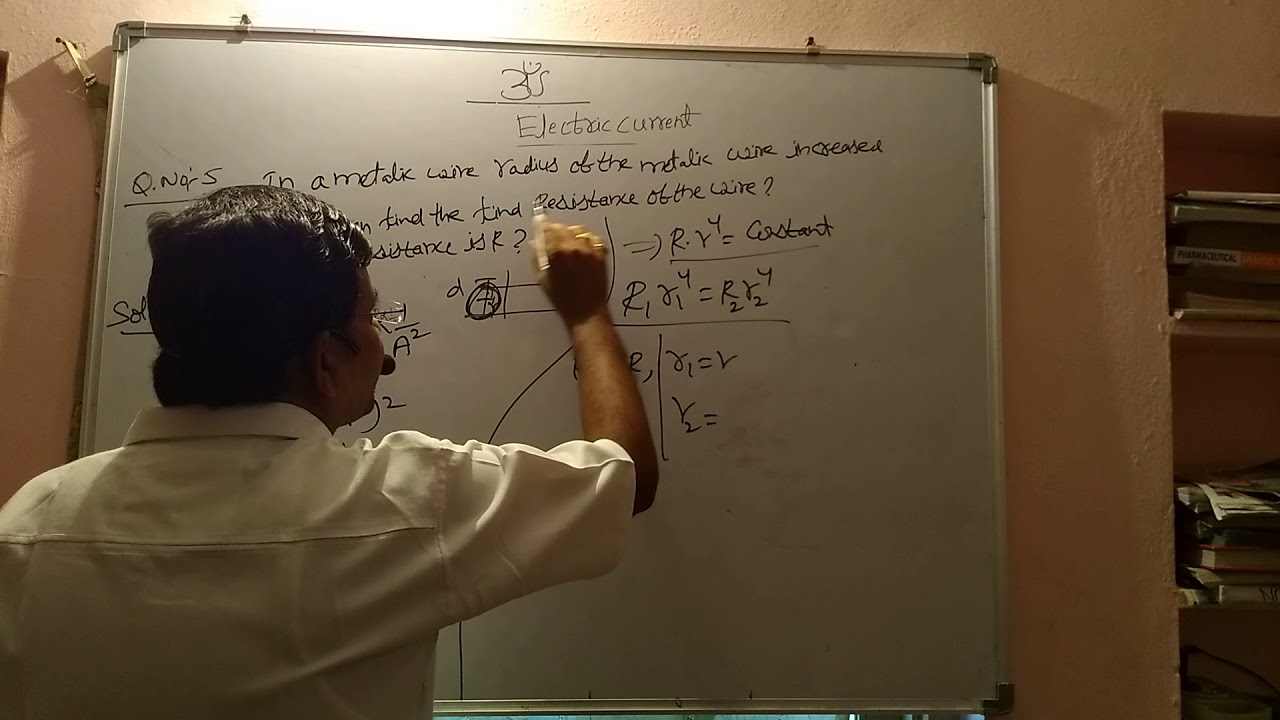 ॐ
Electric current
Q.No:-5 In a metalic wire radius of the metalic wire increased
find the find Resistance of the wire?
is R?
=> R.r⁴ = Constant
Sol
d
R₁r₁⁴ = R₂r₂⁴
A²
)²
R, r₁ = r
r₂ =
PHARMACEUTICAL